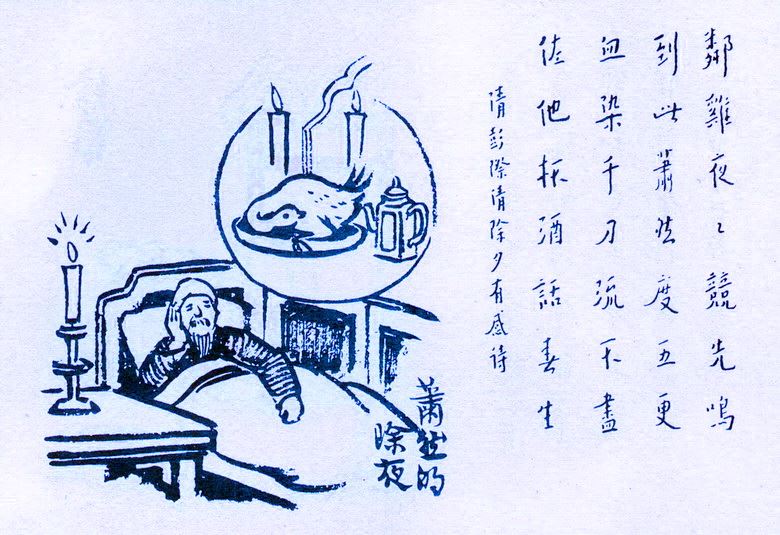 鄰雞夜〻競先鳴
到此蕭然度五更
血染千刀流不盡
佐他杯酒話春生
清彭際清除夕有感诗
蕭然的
除夜